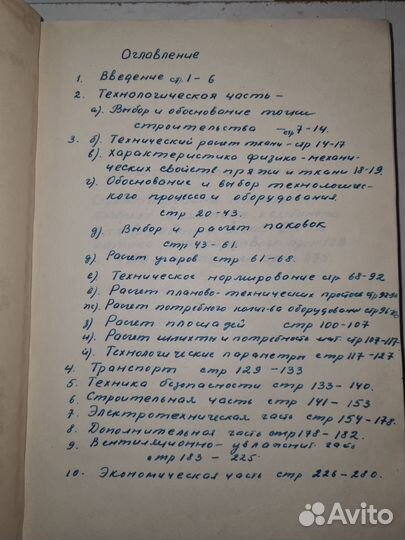 Оглавление
1. Введение стр. 1-6
2. Технологическая часть -
а). Выбор и обоснование точки
строительства - стр 7-14.
3. б). Технический расчет ткани - стр 14-17
в). Характеристика физико-механи-
ческих свойств пряжи и ткани 18-19.
г). Обоснование и выбор технологичес-
кого процесса и оборудования.
стр 20-43.
д). Выбор и расчет паковок
стр 43-61.
д). Расчет угаров стр 61-68.
е). Техническое нормирование стр. 68-92
ё). Расчет планово-технических простоев стр
ж). Расчет потребного колич-ва оборудования стр
з) Расчет площадей стр 100-107
и). Расчет шлихты и потребность мат. стр 107-117
й). Технологические параметры стр 117-127
4. Транспорт стр 129-133
5. Техника безопасности стр 133-140.
6. Строительная часть стр 141-153
7. Электротехническая часть стр 154-178.
8. Дополнительная часть стр 178-182.
9. Вентиляционно-увлажнит. часть
стр 183 - 225.
10. Экономическая часть стр 226-280.
Avito